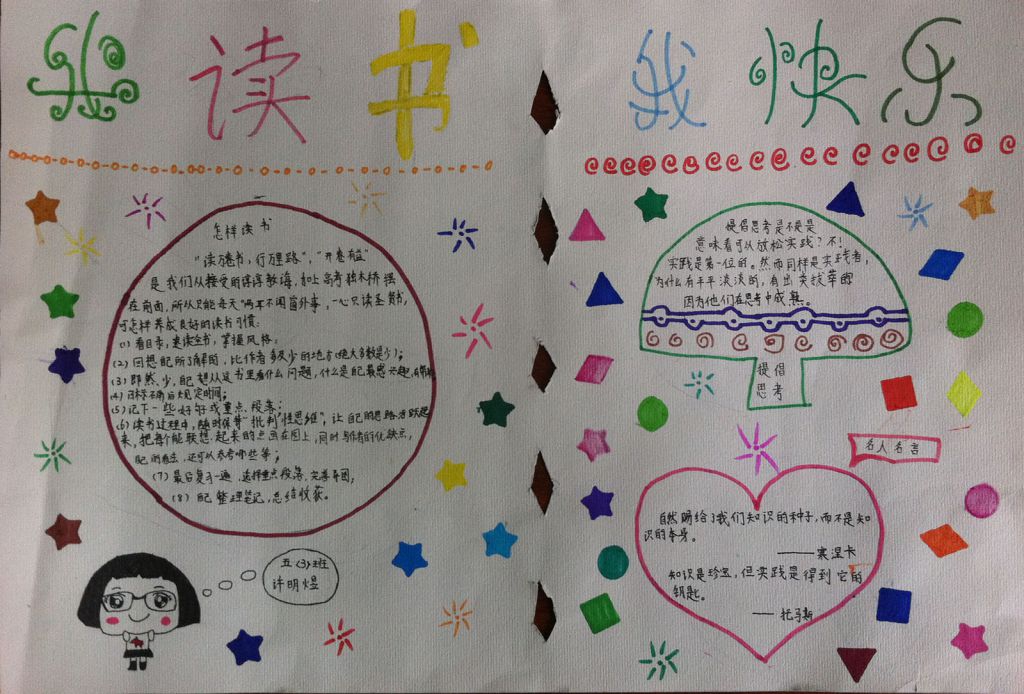 我读书
我快乐
怎样读书
“读万卷书，行万里路”，“开卷有益”
是我们从接受的谆谆教诲，如上高考独木桥摆
在前面，所以只能每天“两耳不闻窗外事，一心只读圣贤书，
可怎样养成良好的读书习惯：
(1) 看目录，来读全书，掌握风格；
(2) 回想起所了解的，比作者多及少的地方(绝大多数是少)；
(3) 即然，少，配想从这书里看什么问题，什么是配最感兴趣，有帮助
(4) 目标不确后大规定时间；
(5) 记下一些好好或重点、段落；
(6) 读书过程中，随时保替“批判”性思维”，让自己的思路活跃起
来，把每个能联想起来的点画在图上，同时写作者的优缺点，
配的看法，还可以参考哪些等；
(7) 最后复习一遍，选择重点段落，完善导图；
(8) 配整理笔记，总结收获。
五(3)班
许明煜
提倡思考是不是是
意味着可以放松实践？不！
实践是第一位的。然而同样是实践者，
为什么有平平淡淡的，有出类拔萃的
因为他们在思考中成熟。
提倡
思考
名人名言
自然赐给了我们知识的种子，而不是知
识的本身。
——塞涅卡
知识是珍宝，但实践是得到它的
钥匙。
——托马斯